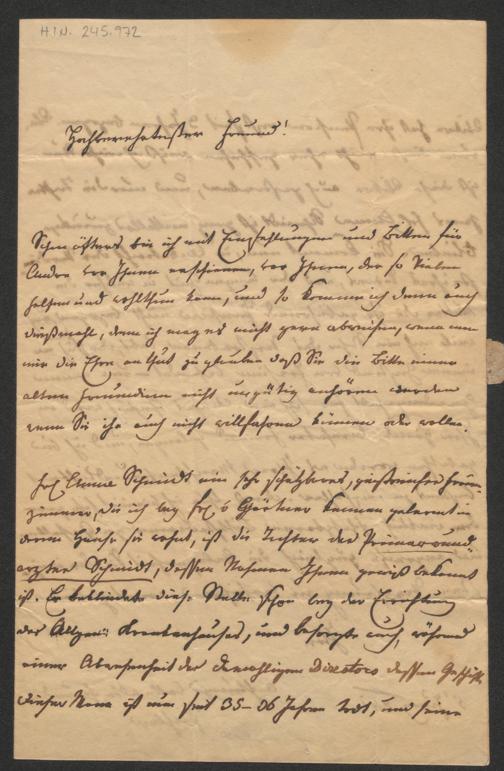 H.I.N. 245.972
Hochverehrtester Freund!
Schon öfters bin ich mit Empfehlungen und Bitten für
Andre vor Ihnen erschienen, vor Ihnen, der so Vielen
helfen und wohlthun kann, und so komme ich denn auch
dießmahl, denn ich mag es nicht gern abweisen, wenn man
mir die Ehre anthut zu glauben daß Sie die Bitte einer
alten Freundinn nicht ungütig anhören werden
wenn Sie ihr auch nicht willfahren können oder wollen.
Frl. Emma Schmidt ein sehr schätzbares, geistreiches Frauen-
zimmer, die ich bey Frl. v Gärtner kennen gelernt in
deren Hause sie wohnt, ist die Tochter des Primarwund-
arztes Schmidt, dessen Nahmen Ihnen gewiß bekannt
ist. Er bekleidete diese Stelle schon bey der Errichtung
des Allgem: Krankenhauses, und besorgte auch, während
einer Abwesenheit des damahligen Directors dessen Geschäfte
Dieser Mann ist nun seit 35-36 Jahren todt, und seine